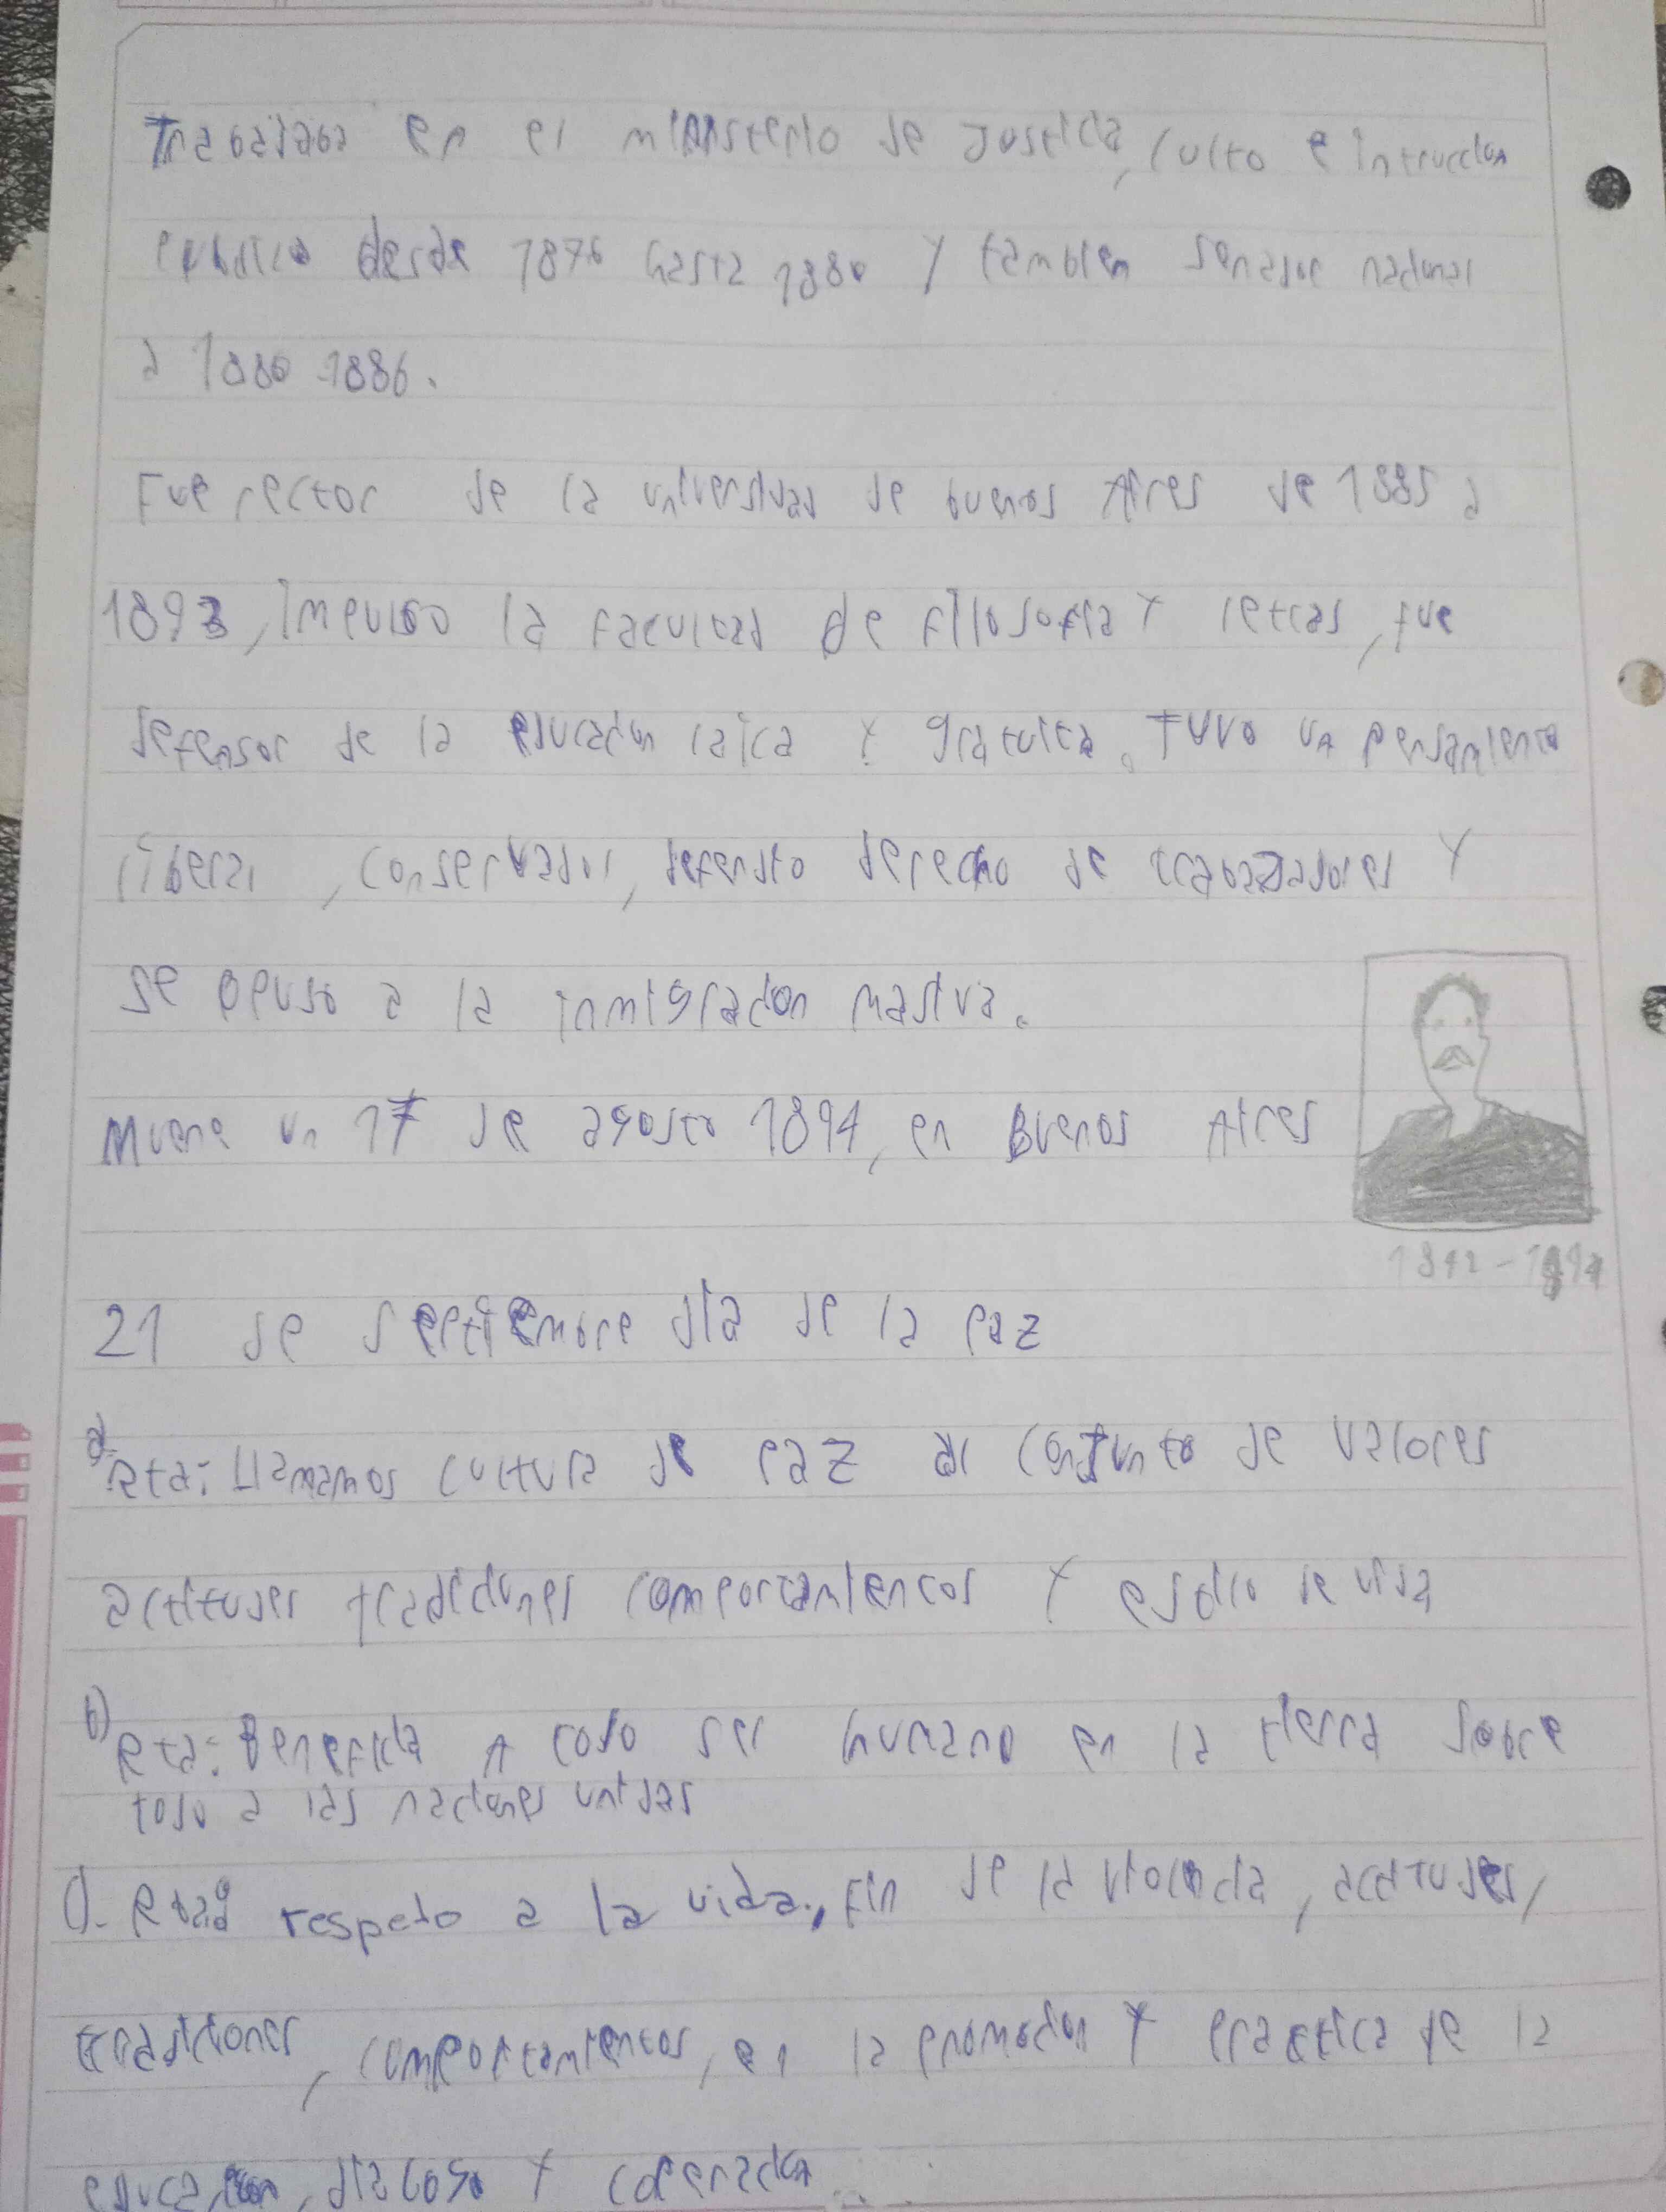 Trabajaba en el ministerio de Justica, culto e intruccion
publico desde 1876 hasta 1880 y tambien senador nacional
a 1880 1886.
Fue rector de la universidad de buenos Aires de 1885 a
1893, impulso la facultad de filosofia y letras, fue
defensor de la educacion laica y gratuita. Tuvo un pensamiento
liberal, conservador, defendio derecho de trabajadores y
se opuso a la inmigracion masiva.
Muere un 17 de agosto 1894, en Buenos Aires
1842-1894
21 de septiembre dia de la paz
a) Rta: Llamamos cultura de paz al conjunto de valores
actitudes tradiciones comportamientos y estilo de vida
b) Rta: Beneficia A todo ser humano en la tierra sobre
todo a las naciones unidas
c). Rta: respeto a la vida., Fin de la violencia, actitudes,
tradiciones, comportamientos, en la promocion y practica de la
educacion, dialogo y coperacion